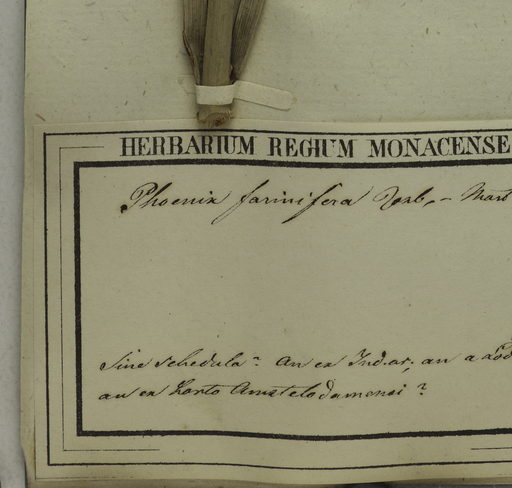 HERBARIUM REGIUM MONACENSE
Phoenix farinifera Roxb. – Mart
Sine schedula: an ex Ind. or; an a
an ex horto Amstelodamensi?